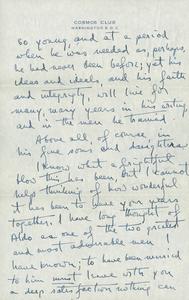 COSMOS CLUB
WASHINGTON 5, D.C.
so young, and at a period
when he was needed as, perhaps,
he had never been before; yet his
ideas and ideals, and his faith
and integrity, will live for
many, many years in his writing
and in the men he trained
Above all, of course, in
his fine sons and daughters
I know what a frightful
blow this has been, but I cannot
help thinking of how wonderful
it has been to have your years
together. I have long thought of
Aldo as one of the two greatest
and most admirable men I
have known; to have been married
to him must leave with you
a deep satisfaction nothing can